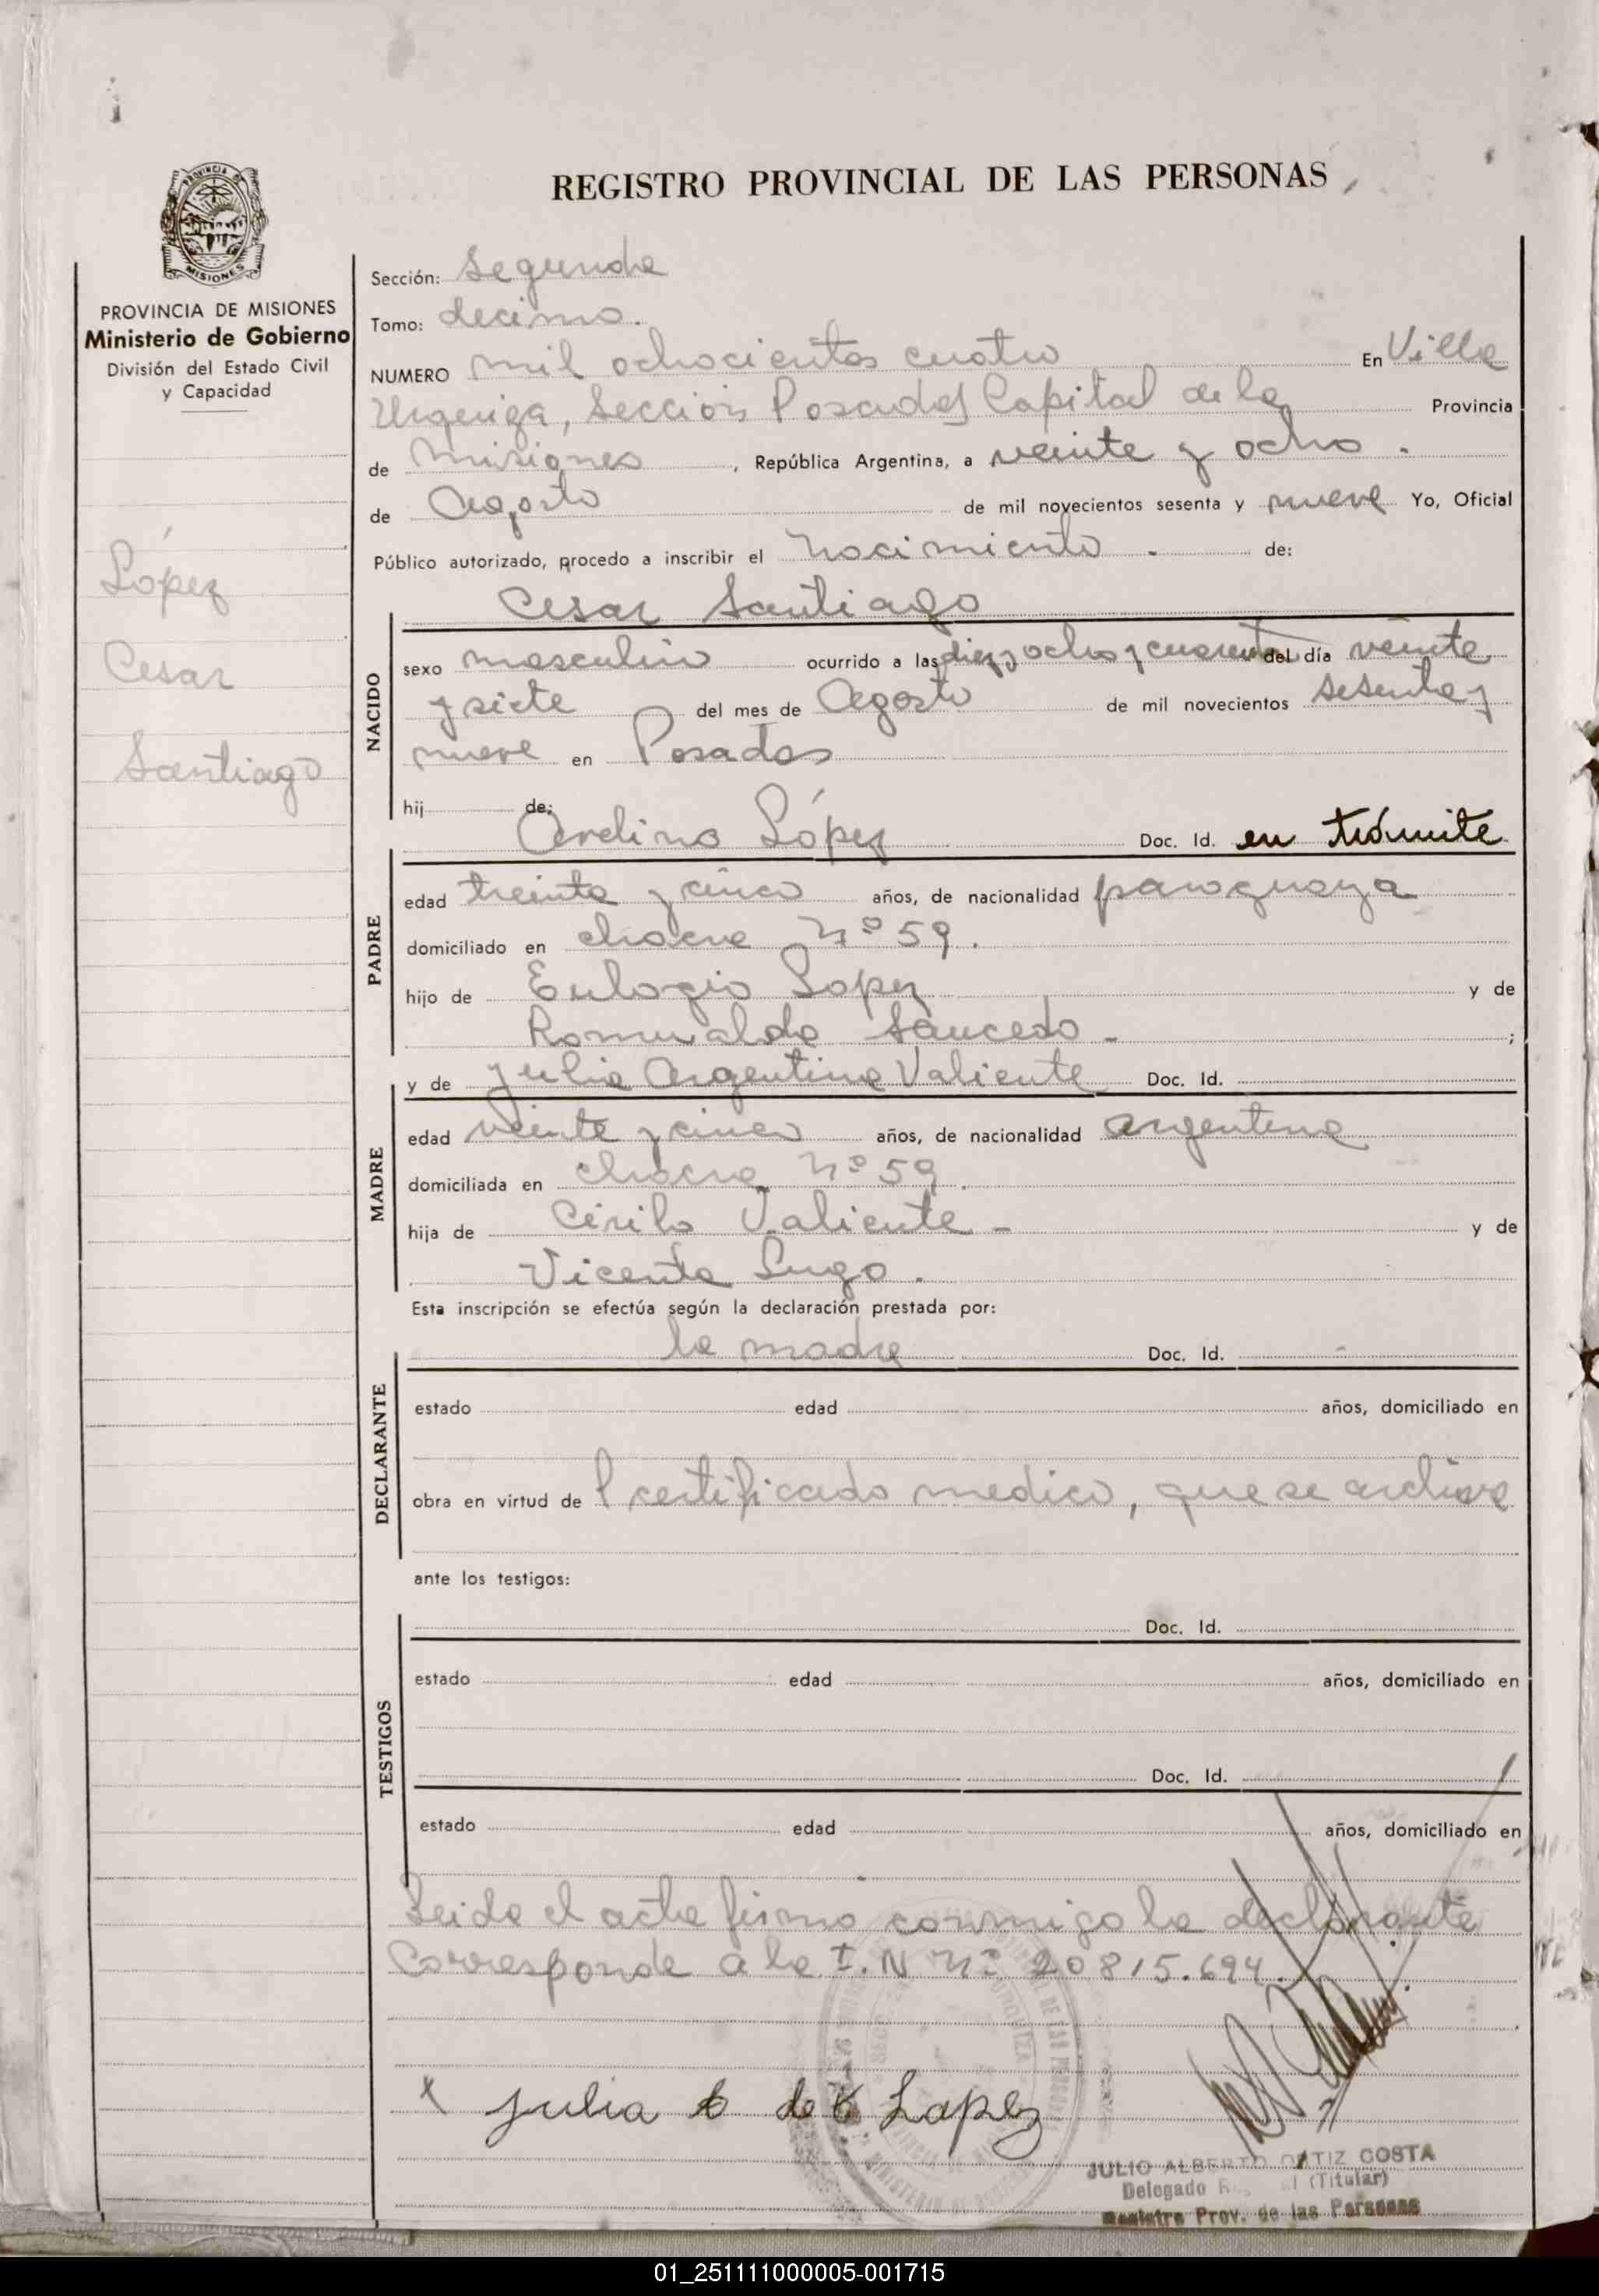 REGISTRO PROVINCIAL DE LAS PERSONAS
PROVINCIA DE MISIONES
MISIONES
PROVINCIA DE MISIONES
Ministerio de Gobierno
División del Estado Civil
y Capacidad
López
Cesar
Santiago
Sección: Segunda
Tomo: decimo.
NUMERO mil ochocientos cuatro En Villa
Urquiza, Sección Posadas Capital de la Provincia
de Misiones, República Argentina, a veinte y ocho.
de Agosto de mil novecientos sesenta y nueve Yo, Oficial
Público autorizado, procedo a inscribir el nacimiento - de:
NACIDO
Cesar Santiago
sexo masculino ocurrido a las diez y ocho y cuarenta del día veinte
y siete del mes de Agosto de mil novecientos sesenta y
nueve en Posadas
hij de:
PADRE
Avelino López Doc. Id. en trámite
edad treinta y cinco años, de nacionalidad paraguaya
domiciliado en chacra Nº 59.
hijo de Eulogio Lopez y de
Romualda Saucedo - ;
MADRE
y de Julia Argentina Valiente Doc. Id.
edad veinte y cinco años, de nacionalidad argentina
domiciliada en chacra Nº 59.
hija de Cirilo Valiente - y de
Vicenta Lugo.
Esta inscripción se efectúa según la declaración prestada por:
DECLARANTE
la madre Doc. Id. -
estado edad años, domiciliado en
obra en virtud de l certificado medico, que se archiva
ante los testigos:
TESTIGOS
Doc. Id.
estado edad años, domiciliado en
Doc. Id.
estado edad años, domiciliado en
Leida el acta firma conmigo la declarante
Corresponde a la I. N Nº 20815.694.
x Julia de Lopez
JULIO ALBERTO ORTIZ COSTA
Delegado (Titular)
Registro Prov. de las Personas
01_251111000005-001715